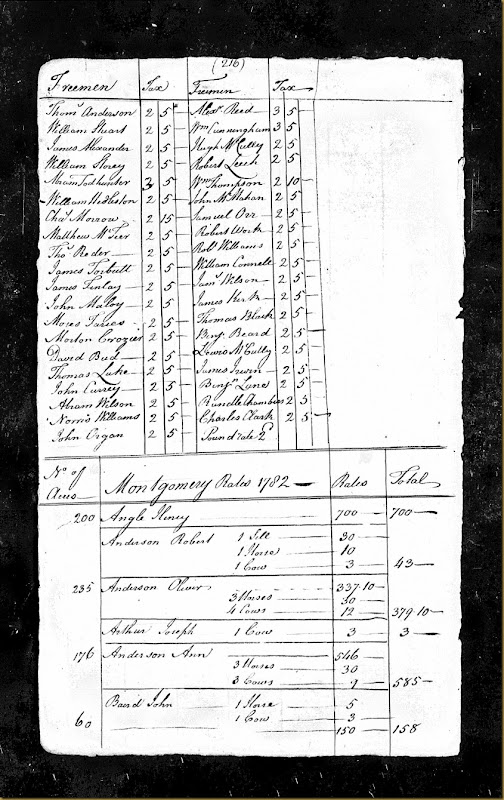 (216)
Freemen Tax Freemen Tax
Thoms Anderson 2 5 Alexr Reed 3 5
William Stuart 2 5 Wm Cunningham 3 5
James Alexander 2 5 Hugh McCully 2 5
William Storey 2 5 Robert Leech 2 5
Abram Todhunter 3 5 Wm Thompson 2 10
William Hedleston 2 5 John McMahan 2 5
Chas Morrow 2 15 Samuel Orr 2 5
Matthew McTeer 2 5 Robert Work 2 5
Thos Reder 2 5 Robt Williams 2 5
James Torbutt 2 5 William Connell 2 5
James Finlay 2 5 Jams Wilson 2 5
John Maley 2 5 James Kirk 2 5
Moses 2 5 Thomas Black 2 5
Morton Crozier 2 5 Benj. Beard 2 5
David Bud 2 5 Lewis McCully 2 5
Thomas Luke 2 5 James Irwin 2 5
John Currey 2 5 Benjn Lane 2 5
Abram Wilson 2 5 Rundle Chambers 2 5
Norris Williams 2 5 Charles Clark 2 5
John Organ 2 5 Pound rate 2d
No of Acres Montgomery Rates 1782 Rates Total
200 Angle Henry 700 700
Anderson Robert 1 Still 30
1 Horse 10
1 Cow 3 43
235 Anderson Oliver 337.10
3 Horses 30
4 Cows 12 379.10
Arthur Joseph 1 Cow 3 3
176 Anderson Ann 546
3 Horses 30
3 Cows 9 585
Baird John 1 Horse 5
1 Cow 3
60 150 158